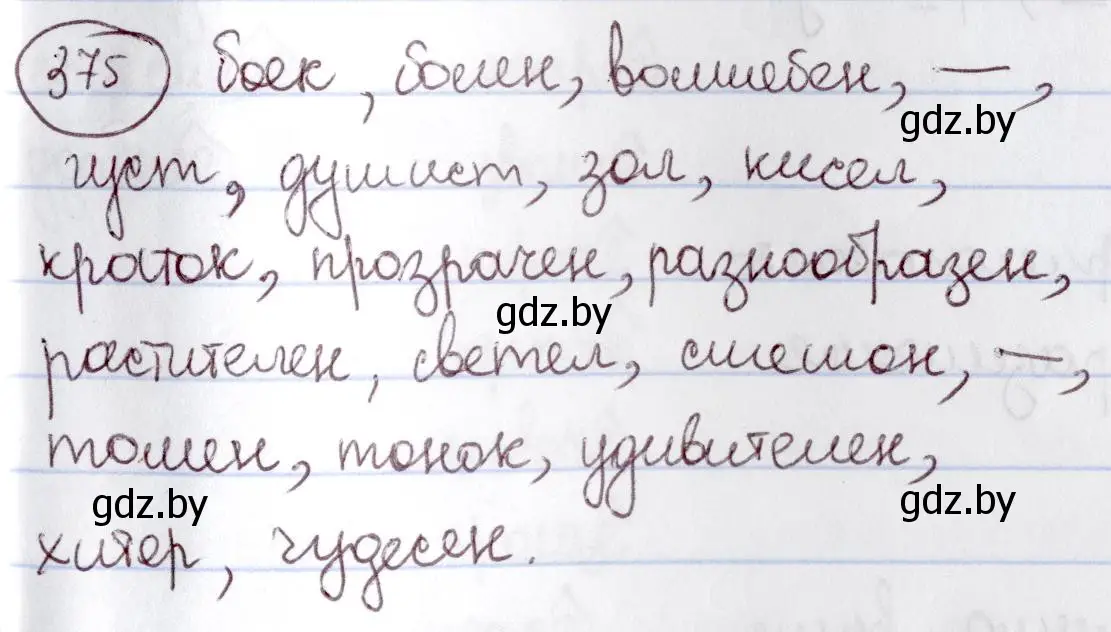 375 боек, болен, волшебен, —,
gdz.by
густ, душист, зол, кисел,
краток, прозрачен, разнообразен,
gdz.by
растителен, светел, смешон, —,
томен, тонок, удивителен,
gdz.by gdz.by
хитер, чудесен.